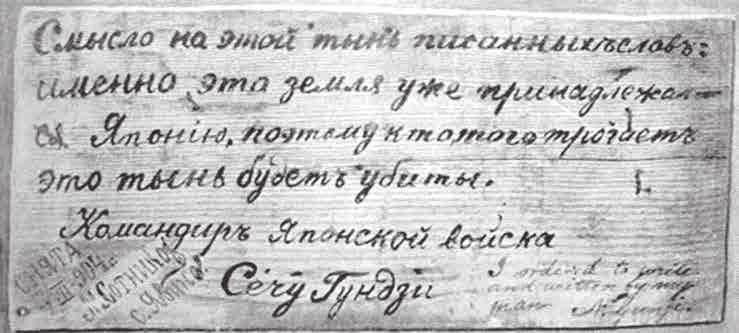 Смысло на этой тынь писанныхъ словъ:
именно эта земля уже принадлежал—
ся Японію, поэтому кто того трогаетъ
это тынь будетъ убиты.
Командиръ Японской войска
Сечу Гундзи
СНЯТА
VII 904 г.
с. Явино
I orderd to write
and written by my
man